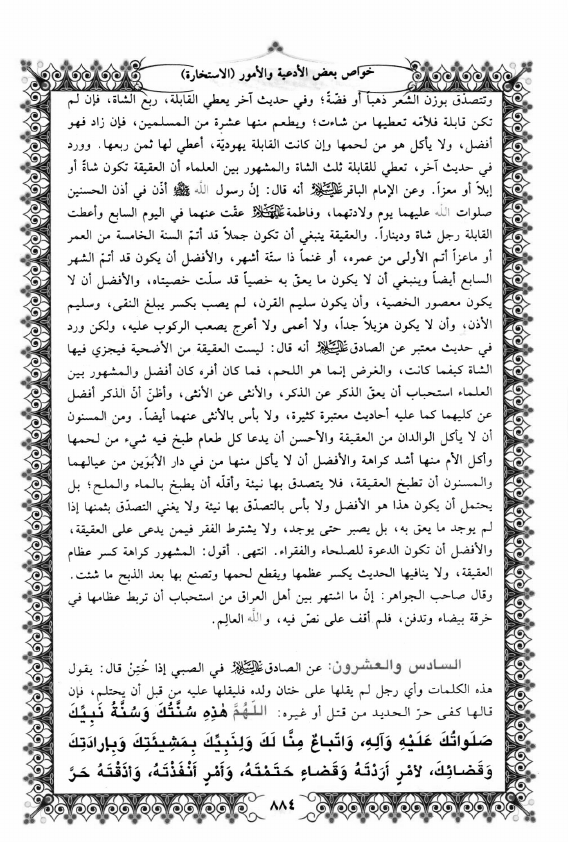 خواص بعض الأدعية والأمور (الاستخارة)
وتتصدّق بوزن الشّعر ذهباً أو فضّةً؛ وفي حديث آخر يعطي القابلة، ربع الشاة، فإن لم
تكن قابلة فلأمّه تعطيها من شاءت؛ ويطعم منها عشرة من المسلمين، فإن زاد فهو
أفضل، ولا يأكل هو من لحمها وإن كانت القابلة يهوديّة، أعطي لها ثمن ربعها. وورد
في حديث آخر، تعطي للقابلة ثلث الشاة والمشهور بين العلماء أن العقيقة تكون شاةً أو
إبلاً أو معزاً. وعن الإمام الباقر عليه السلام أنه قال: إنّ رسول الله ﷺ أذّن في أذن الحسنين
صلوات الله عليهما يوم ولادتهما، وفاطمة عليها السلام عقّت عنهما في اليوم السابع وأعطت
القابلة رجل شاة وديناراً. والعقيقة ينبغي أن تكون جملاً قد أتمّ السنة الخامسة من العمر
أو ماعزاً أتم الأولى من عمره، أو غنماً ذا ستّة أشهر، والأفضل أن يكون قد أتمّ الشهر
السابع أيضاً وينبغي أن لا يكون ما يعقّ به خصياً قد سلّت خصيتاه، والأفضل أن لا
يكون معصور الخصية، وأن يكون سليم القرن، لم يصب بكسر يبلغ النقى، وسليم
الأذن، وأن لا يكون هزيلاً جداً، ولا أعمى ولا أعرج يصعب الركوب عليه، ولكن ورد
في حديث معتبر عن الصادق عليه السلام أنه قال: ليست العقيقة من الأضحية فيجزي فيها
الشاة كيفما كانت، والغرض إنما هو اللحم، فما كان أفره كان أفضل والمشهور بين
العلماء استحباب أن يعقّ الذكر عن الذكر، والأنثى عن الأنثى، وأظنّ أنّ الذكر أفضل
عن كليهما كما عليه أحاديث معتبرة كثيرة، ولا بأس بالأنثى عنهما أيضاً. ومن المسنون
أن لا يأكل الوالدان من العقيقة والأحسن أن يدعا كل طعام طبخ فيه شيء من لحمها
وأكل الأم منها أشد كراهة والأفضل أن لا يأكل منها من في دار الأبوَين من عيالهما
والمسنون أن تطبخ العقيقة، فلا يتصدق بها نيئة وأقلّه أن يطبخ بالماء والملح؛ بل
يحتمل أن يكون هذا هو الأفضل ولا بأس بالتصدّق بها نيئة ولا يغني التصدّق بثمنها إذا
لم يوجد ما يعق به، بل يصبر حتى يوجد، ولا يشترط الفقر فيمن يدعى على العقيقة،
والأفضل أن تكون الدعوة للصلحاء والفقراء. انتهى. أقول: المشهور كراهة كسر عظام
العقيقة، ولا ينافيها الحديث يكسر عظمها ويقطع لحمها وتصنع بها بعد الذبح ما شئت.
وقال صاحب الجواهر: إنّ ما اشتهر بين أهل العراق من استحباب أن تربط عظامها في
خرقة بيضاء وتدفن، فلم أقف على نصّ فيه، واللَّه العالِم.
السادس والعشرون: عن الصادق عليه السلام في الصبي إذا خُتِنَ قال: يقول
هذه الكلمات وأي رجل لم يقلها على ختان ولده فليقلها عليه من قبل أن يحتلم، فإن
قالها كفى حرّ الحديد من قتل أو غيره: اللَّهُمَّ هٰذِهِ سُنَّتُكَ وَسُنَّةُ نَبِيِّكَ
صَلَواتُكَ عَلَيْهِ وَآلِهِ، وَاتِّباعٌ مِنَّا لَكَ وَلِنَبِيِّكَ بِمَشِيئَتِكَ وَبِإِرادَتِكَ
وَقَضائِكَ، لأمْرٍ أَرَدْتَهُ وَقَضاءٍ حَتَمْتَهُ، وَأَمْرٍ أَنْفَذْتَهُ، وَأَذَقْتَهُ حَرَّ
٨٨٤